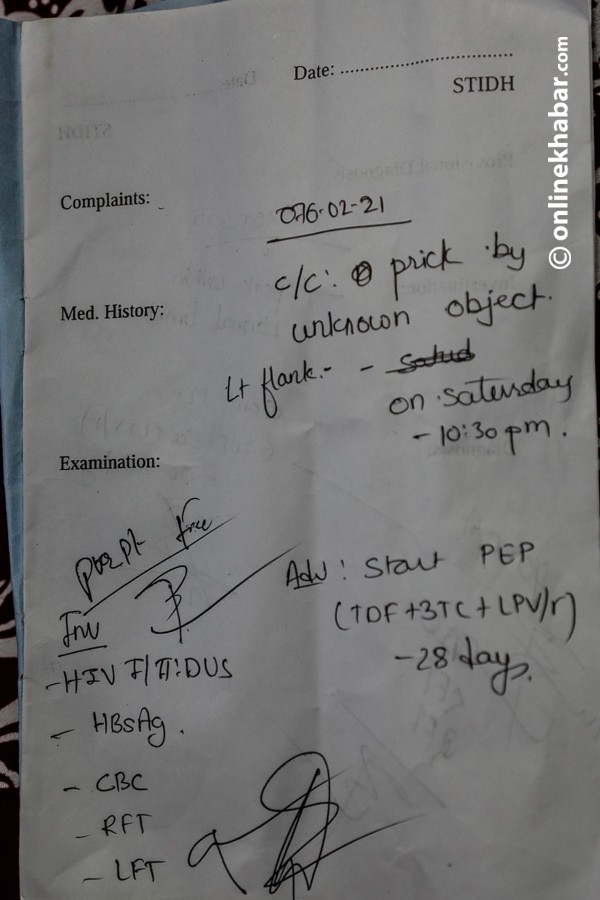 Date: ........................................
STIDH
© onlinekhabar.com
Complaints:
076-02-21
c/c: prick by
Med. History:
unknown object.
Lt flank.- -
on saturday
- 10:30 pm.
Examination:
free
Inv
Adv: Start PEP
(TDF+3TC+LPV/r)
- 28 days.
- HIV I/II:DUS
- HBsAg.
- CBC
- RFT
- LFT